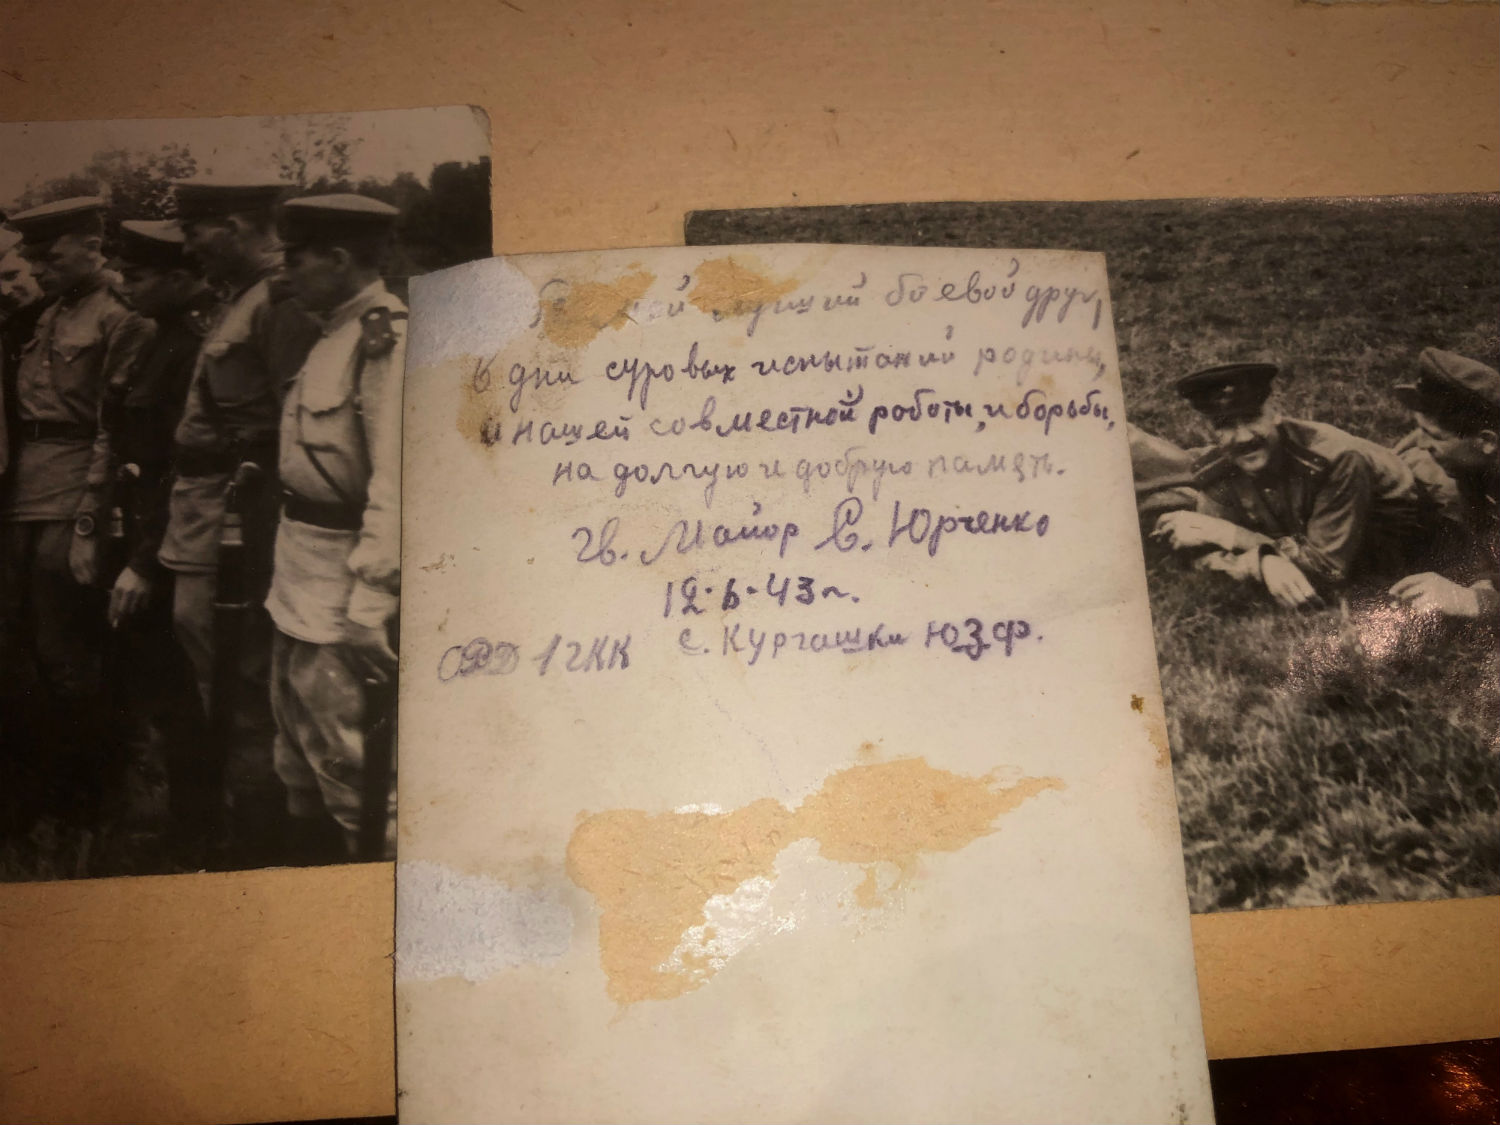 боевой друг,
в дни суровых испытаний родины,
и нашей совместной работы, и борьбы,
на долгую и добрую память.
гв. Майор С. Юрченко
12.6.43 г.
1 гКК с. Кургашки ЮЗФ.